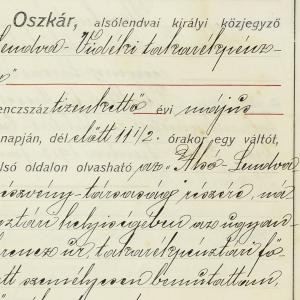 Oszkár, alsólendvai királyi közjegyző
Lendva-Vidéki takarékpénz-
enczszáz tizenkettő évi május
napján, dél előtt 11 1/2. órakor egy váltót,
lső oldalon olvasható az "Alsó-Lendva
részvény-társaság" részére, ná
ztári helyiségében az ugyan-
erencz úr, takarékpénztári fő-
tt személyesen bemutattam,